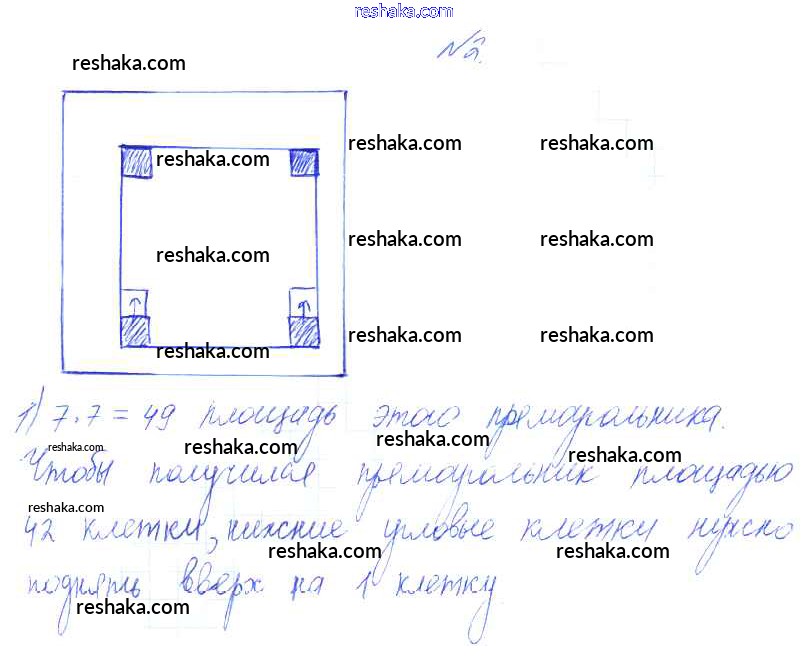 reshaka.com
№2.
reshaka.com
reshaka.com reshaka.com reshaka.com
reshaka.com reshaka.com reshaka.com
reshaka.com reshaka.com reshaka.com
1) 7·7=49 площадь этого прямоугольника.
reshaka.com reshaka.com reshaka.com
Чтобы получился прямоугольник площадью
reshaka.com reshaka.com
42 клетки, нижние угловые клетки нужно
reshaka.com reshaka.com
поднять вверх на 1 клетку
reshaka.com reshaka.com